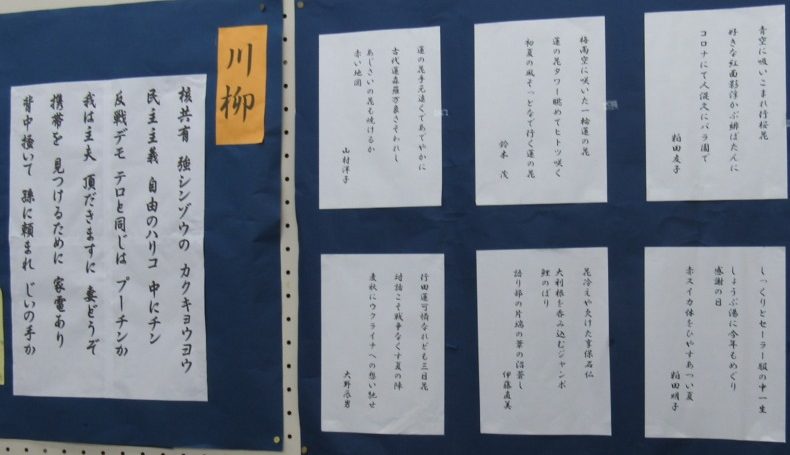 川柳
核共有 強シンゾウの カクキョウヨウ
民主主義 自由のハリコ 中にチン
反戦デモ テロと同じは プーチンか
我は主夫 頂だきますに 妻どうぞ
携帯を 見つけるために 家電あり
背中掻いて 孫に頼まれ じいの手か
青空に吸いこまれ行桜花
好きな紅面影浮かぶ緋ぼたんに
コロナにて人混文にバラ園で
稲田友子
梅雨空に咲いた一輪蓮の花
蓮の花タワー眺めてヒトツ咲く
初夏の風そっとなで行く蓮の花
鈴木 茂
蓮の花手元遠くであでやかに
古代蓮森羅万象さそわれし
あじさいの花も焼けるか
赤い地図
山村洋子
しっくりとセーラー服の中一生
しょうぶ湯に今年もめぐり
感謝の日
赤スイカ体をひやすあつい夏
稲田明子
花冷えや欠けた享保石仏
大利根を呑み込むジャンボ
鯉のぼり
語り部の片端の葦の沼
伊藤直美
行田蓮可憐なれども三日花
対話こそ戦争なくす夏の陣
麦秋にウクライナへの想い馳せ
大野辰男